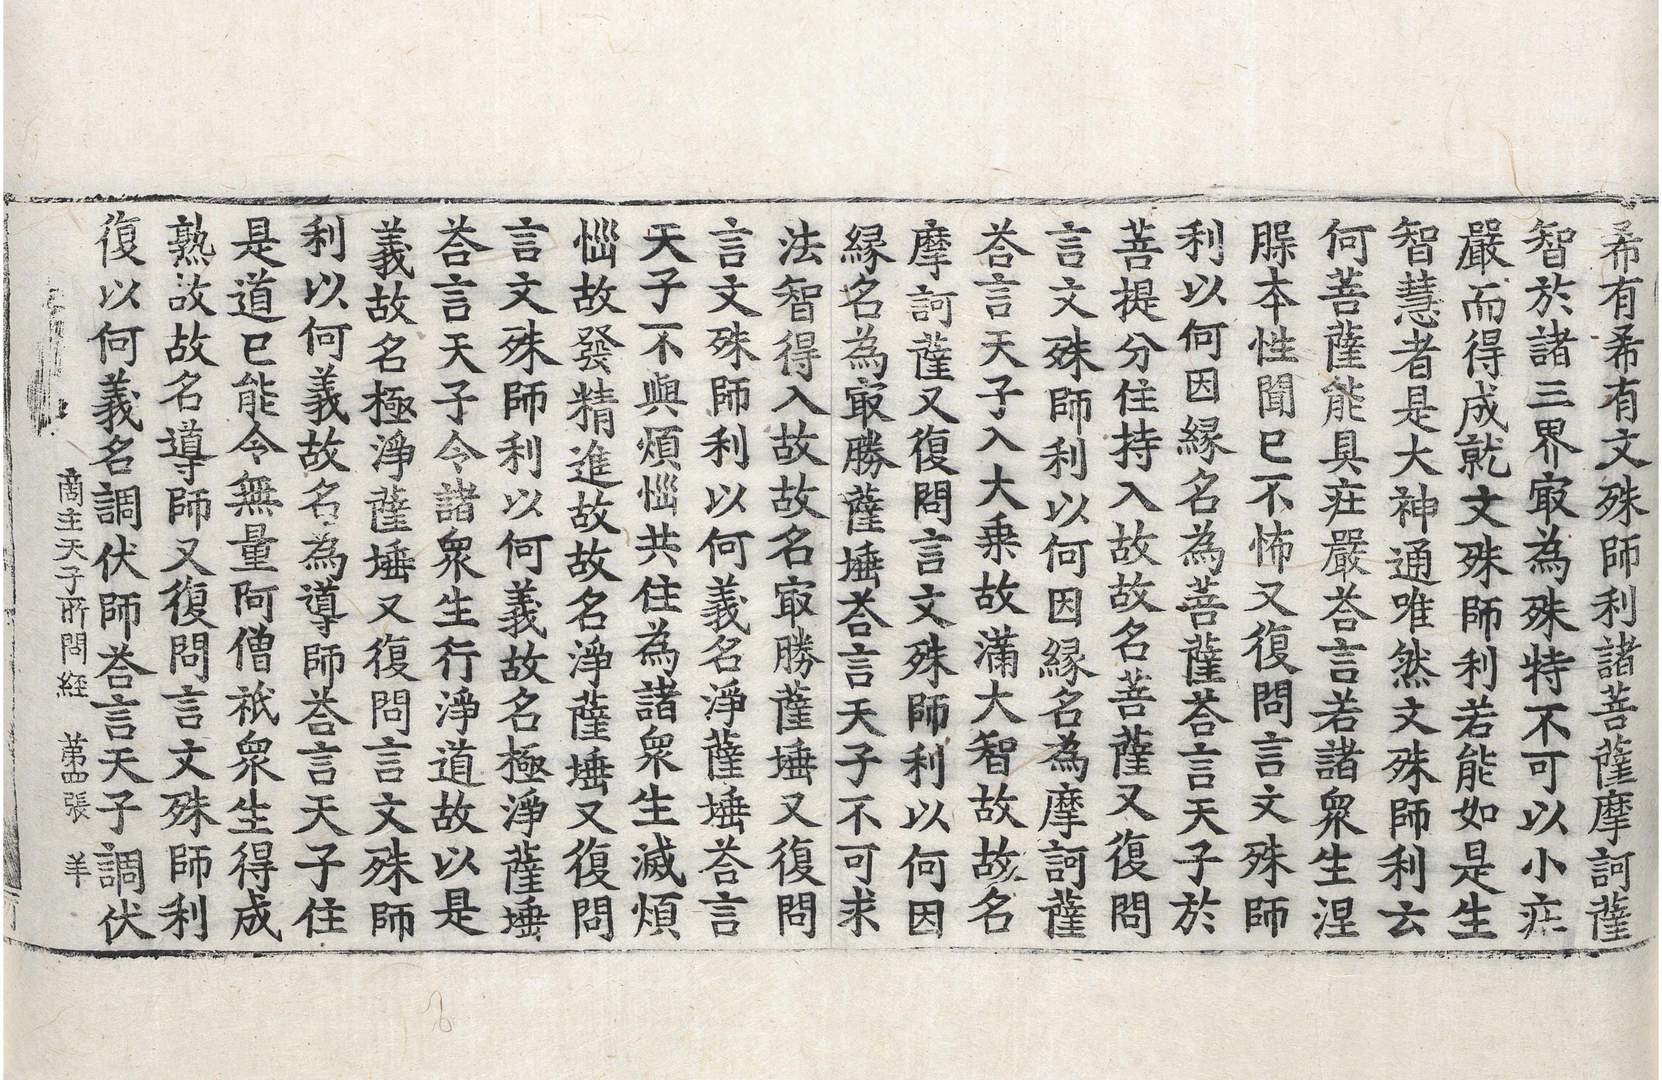 希有希有文殊師利諸菩薩摩訶薩
智於諸三界㝡為殊特不可以小莊
嚴而得成就文殊師利若能如是生
智慧者是大神通唯然文殊師利云
何菩薩能具莊嚴荅言若諸衆生涅
槃本性聞已不怖又復問言文殊師
利以何因縁名為菩薩荅言天子於
菩提分住持入故故名菩薩又復問
言文殊師利以何因縁名為摩訶薩
荅言天子入大乗故滿大智故故名
摩訶薩又復問言文殊師利以何因
縁名為㝡勝薩埵荅言天子不可求
法智得入故故名㝡勝薩埵又復問
言文殊師利以何義名淨薩埵荅言
天子不與煩惱共住為諸衆生滅煩
惱故發精進故故名淨薩埵又復問
言文殊師利以何義故名極淨薩埵
荅言天子令諸衆生行淨道故以是
義故名極淨薩埵又復問言文殊師
利以何義故名為導師荅言天子住
是道已能令無量阿僧祇衆生得成
熟故故名導師又復問言文殊師利
復以何義名調伏師荅言天子調伏
商主天子所問経 苐四張 羊